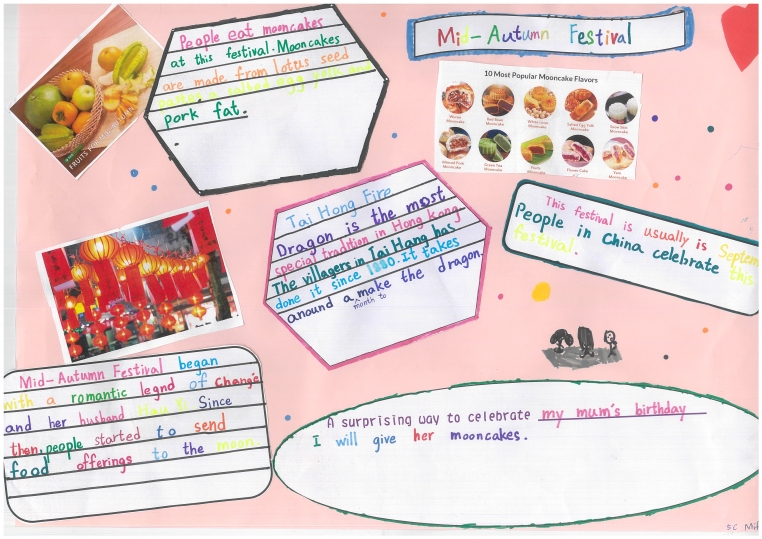 Mid-Autumn Festival
People eat mooncakes
at this festival. Mooncakes
are made from lotus seed
a salted egg yolk and
pork fat.
FRUITS
10 Most Popular Mooncake Flavors
Red Bean
Mooncake
White Lotus
Mooncake
Salted Egg Yolk
Mooncake
Snow Skin
Mooncake
Mooncake
Green Tea
Mooncake
Mooncake
Flower Cake
Yam
Mooncake
This festival is usually is Septem
People in China celebrate this
festival.
Tai Hong Fire
Dragon is the most
special tradition in Hong kong
The villagers in Tai Hang has
done it since 1880. It takes
around a month to make the dragon.
Mid-Autumn Festival began
with a romantic legnd of Change
and her husband Hou Yi Since
then, people started to send
food offerings to the moon
A surprising way to celebrate my mum's birthday
I will give her mooncakes.
5C